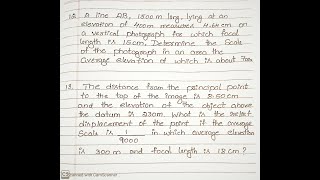 12. A line AB, 1500 m long, lying at an
elevation of 400m measures 9.64 cm on
a vertical photograph for which focal
length is 15cm. Determine the scale
of the photograph in an area the
average elevation of which is about
13. The distance from the principal point
to the top of the image is 8.50 cm
and the elevation of the object above
the datum is 230m. What is the relief
displacement of the point if the average
scale is 1/9000 in which average elevation
is 300 m and focal length is 18 cm?